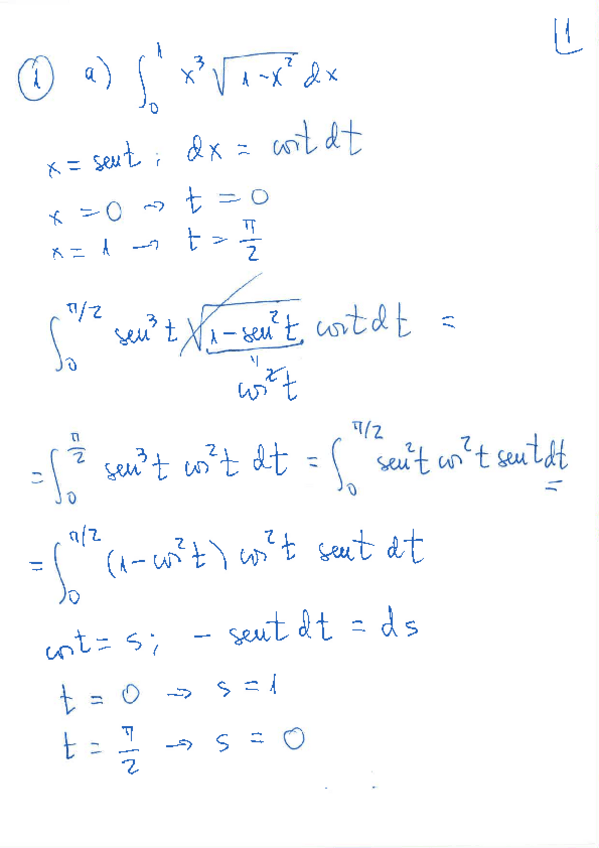 1
① a) ∫₀¹ x³ √(1-x²) dx
x = sen t ; dx = cos t dt
x = 0 → t = 0
x = 1 → t = π/2
∫₀^(π/2) sen³ t √(1 - sen² t) cos t dt =
" 
cos² t
= ∫₀^(π/2) sen³ t cos² t dt = ∫₀^(π/2) sen² t cos² t sen t dt =
= ∫₀^(π/2) (1 - cos² t) cos² t sen t dt
cos t = s ; - sen t dt = ds
t = 0 → s = 1
t = π/2 → s = 0